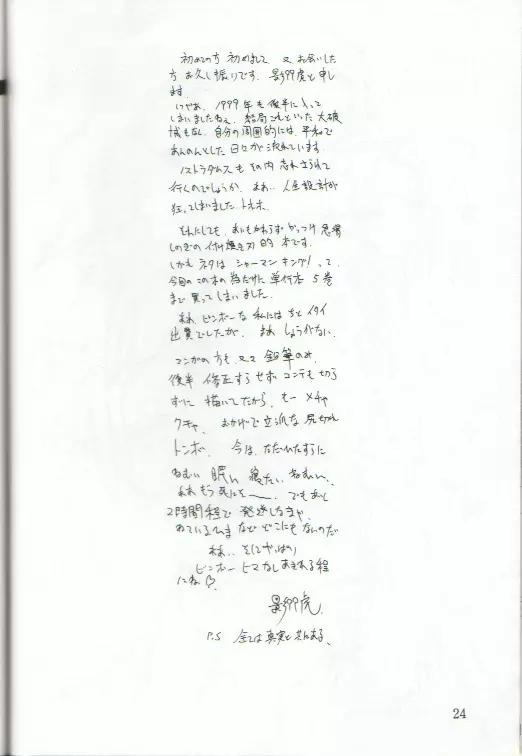 初めての方 初めまして 又 お会いした
方 お久し振りです. 影夘虎と申し
ます.
いやぁ. 1999年も後半に入って
しまいましたねぇ. 結局これといった 大破
もなし. 自分の周囲的には. 平和で
あんのんとした 日々が流れています.
ノストラダムスも その内 忘れ去られて
行くのでしょうか. まぁ.. 人生設計が
狂ってしまいました. トホホ.
それにしても. あいもかわらず やっつけ
しのぎの 付け 的 本です.
しかも ネタは シャーマンキング!って.
今回の この本の為だけに 単行本 5巻
まで 買ってしまいました.
まぁ ビンボーな 私には ちと イタイ
出費でしたが. まぁ しょうがない.
マンガの方も 又々 鉛筆のみ.
後半 修正すら せず コンテも 切ら
ずに 描いてたから. もー メチャ
クチャ. おかげで 立派な 尻切れ
トンボ. 今は. ただひたすらに
ねむい 眠い 寝たい ねむい..
ああ もう 死にそ〜. でも あと
2時間程で 発送しなきゃ.
ねているひま など どこにも ないのだ
ああ.. そしてやっぱり
ビンボー ヒマなし あきれる程
にね♡.
影夘虎.
P.S 全ては 真実と 共にある.
24